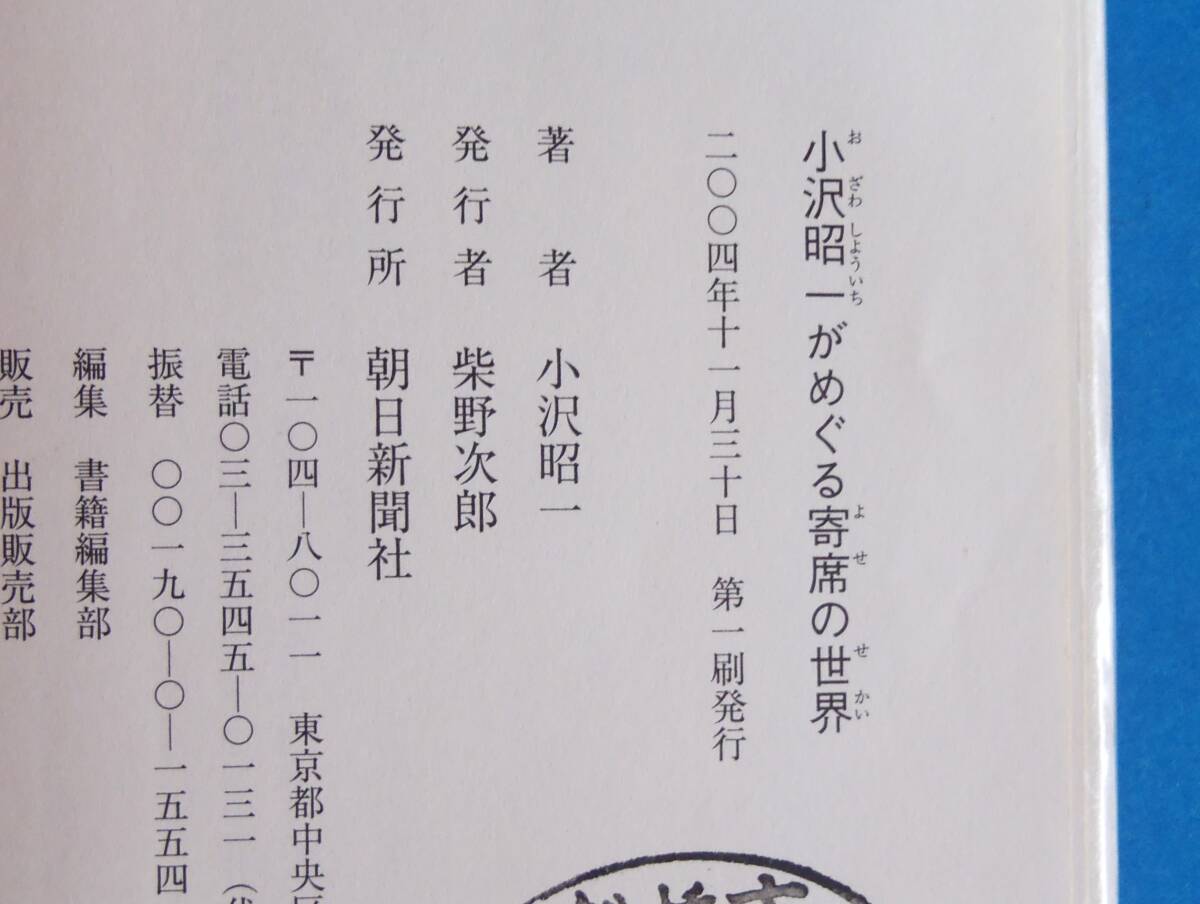 小沢昭一がめぐる寄席の世界
おざわしょういち
よせ
せかい
二〇〇四年十一月三十日　第一刷発行
著者　小沢昭一
発行者　柴野次郎
発行所　朝日新聞社
〒一〇四―八〇一一　東京都中央区
電話〇三―三五四五―〇一三一（代
振替　〇〇一九〇―〇―一五五四
編集　書籍編集部
販売　出版販売部